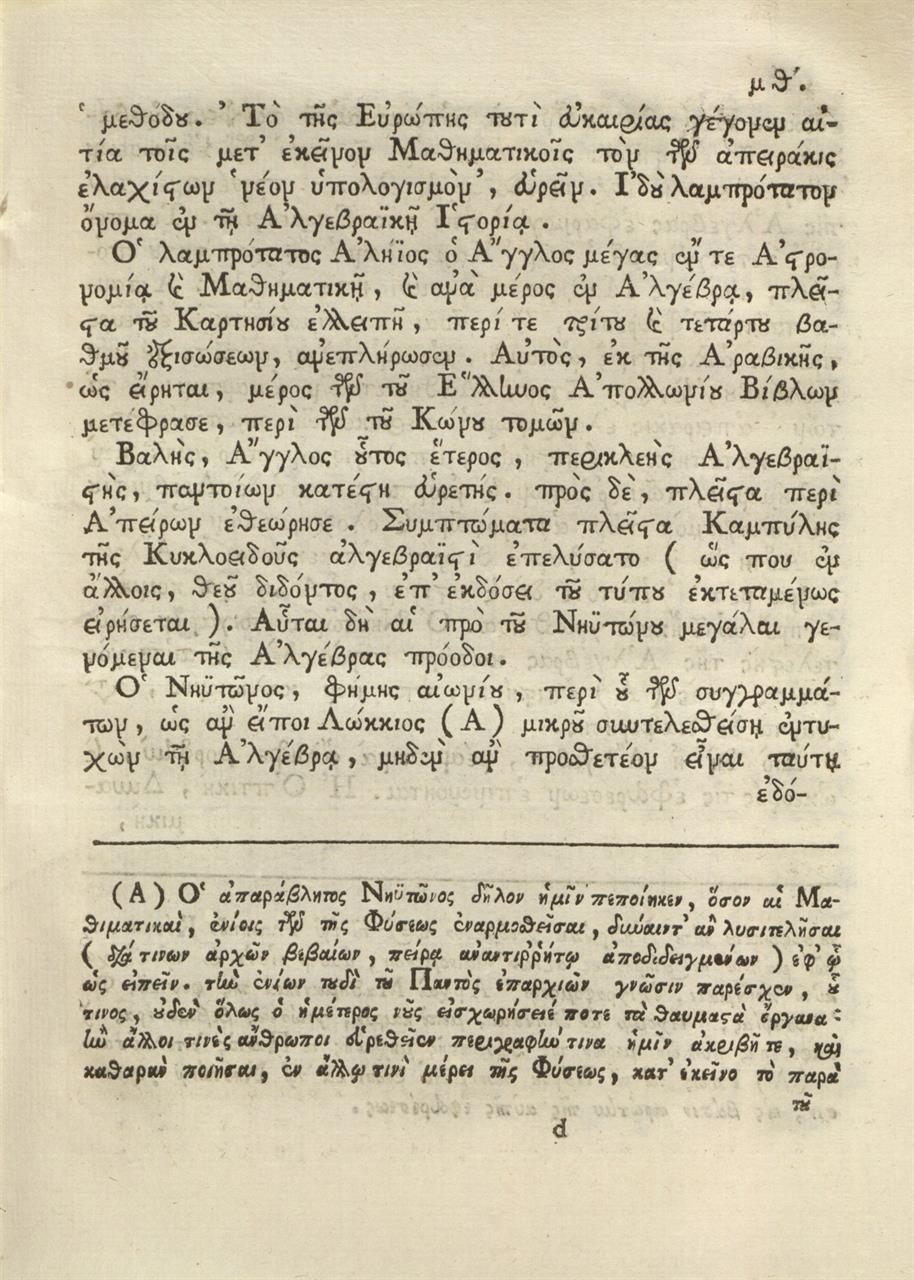 μθ΄.
῾μεθόδου. ᾿ Τὸ τῆς Εὐρώπης τουτὶ εὐκαιρίας γέγονεν αἰ-
τία τοῖς μετ᾿ ἐκεῖνον Μαθηματικοῖς τὸν τῶν ἀπειράκις
ἐλαχίστων ῾νέον ὑπολογισμὸν᾿, εὑρεῖν. Ἰδοὺ λαμπρότατον
ὄνομα ἐν τῇ Ἀλγεβραϊκῇ Ἱστορίᾳ.
Ὁ λαμπρότατος Ἀλήϊος ὁ Ἄγγλος μέγας ἔν τε Ἀστρο-
νομίᾳ καὶ Μαθηματικῇ, καὶ ἀνὰ μέρος ἐν Ἀλγέβρᾳ, πλεῖ-
στα τοῦ Καρτησίου ἐλλειπῆ, περί τε τρίτου καὶ τετάρτου βα-
θμοῦ ἐξισώσεων, ἀνεπλήρωσεν. Αὐτὸς, ἐκ τῆς Ἀραβικῆς,
ὡς εἴρηται, μέρος τῶν τοῦ Ἕλληνος Ἀπολλωνίου Βίβλων
μετέφρασε, περὶ τῶν τοῦ Κώνου τομῶν.
Βαλὴς, Ἄγγλος οὗτος ἕτερος, περικλεὴς Ἀλγεβραϊ-
στὴς, παντοίων κατέστη εὑρετής. πρὸς δὲ, πλεῖστα περὶ
Ἀπείρων ἐθεώρησε. Συμπτώματα πλεῖστα Καμπύλης
τῆς Κυκλοειδοῦς ἀλγεβραϊστὶ ἐπελύσατο (ὥς που ἐν
ἄλλοις, θεοῦ διδόντος, ἐπ᾿ ἐκδόσει τοῦ τύπου ἐκτεταμένως
εἰρήσεται). Αὗται δὴ αἱ πρὸ τοῦ Νηϋτώνου μεγάλαι γε-
νόμεναι τῆς Ἀλγέβρας πρόοδοι.
Ὁ Νηϋτῶνος, φήμης αἰωνίου, περὶ οὗ τῶν συγγραμμά-
των, ὡς ἂν εἴποι Λώκκιος (Α) μικροῦ συντελεσθείσῃ ἐντυ-
χὼν τῇ Ἀλγέβρᾳ, μηδὲν ἂν προσθετέον εἶναι ταύτῃ
ἐδό-
(Α) Ὁ ἀπαράβλητος Νηϋτῶνος δῆλον ἡμῖν πεποίηκεν, ὅσον αἱ Μα-
θιματικαὶ, ἐνίοις τῶν τῆς Φύσεως ἐναρμοσθεῖσαι, δύναιντ᾿ ἂν λυσιτελῆσαι
(διά τινων ἀρχῶν βεβαίων, πείρᾳ ἀναντιρρήτῳ ἀποδιδειγμένων) ἐφ᾿ ᾧ
ὡς εἰπεῖν. τὴν ἐνίων τουδὶ τοῦ Παντὸς ἐπαρχιῶν γνῶσιν παρέσχεν, οὗ
τινος, οὐδὲν ὅλως ὁ ἡμέτερος νοῦς εἰσχωρήσειέ ποτε τὰ θαυμαστὰ ἔργανα:
ἢν ἄλλοι τινὲς ἄνθρωποι εὑρεθεῖεν περιγραφήν τινα ἡμῖν ἀκριβῆ τε, καὶ
καθαρὰν ποιῆσαι, ἐν ἄλλῳ τινὶ μέρει τῆς Φύσεως, κατ᾿ ἐκεῖνο τὸ παρὰ
τοῦ
d